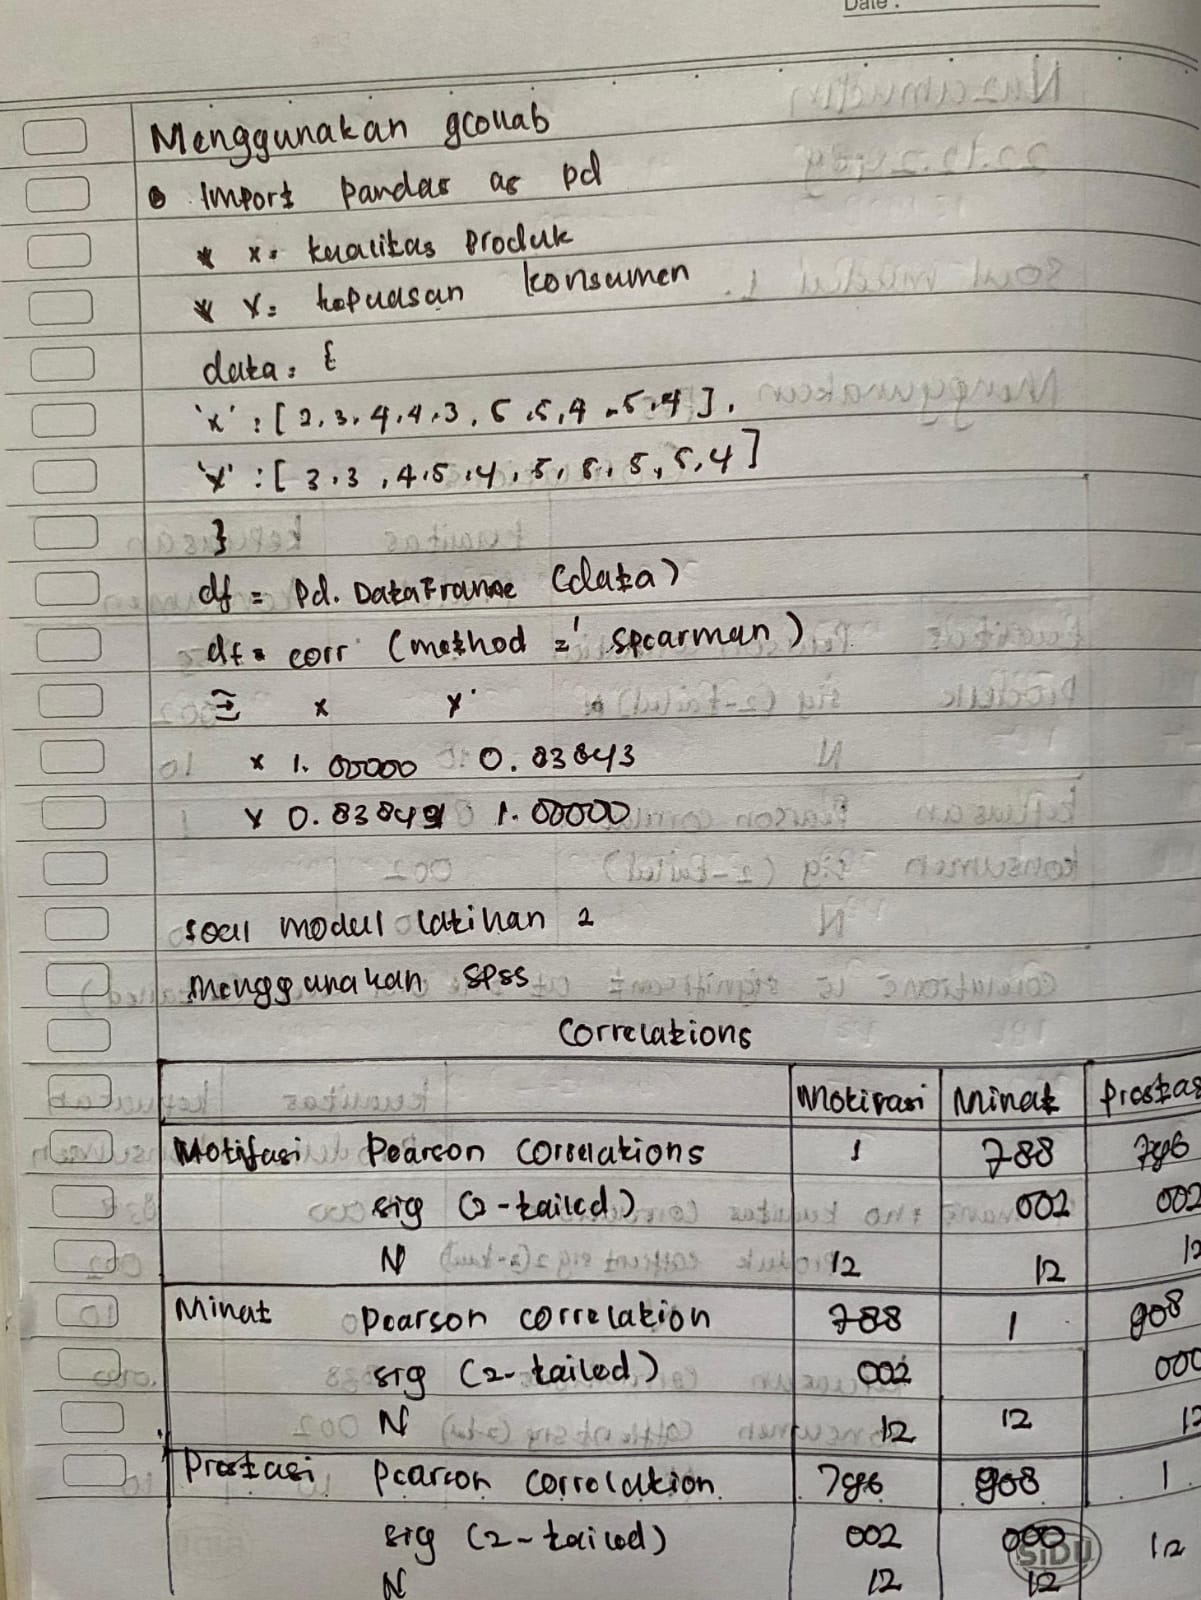 Date :
Menggunakan gcollab
Import pandas as pd
* x = kualitas produk
* Y = kepuasan konsumen
data = {
'x' : [ 2, 3, 4, 4, 3, 5, 5, 4, 5, 4 ],
'Y' : [ 3, 3, 4, 5, 4, 5, 5, 5, 5, 4 ]
}
df = pd. DataFrame (data)
df = corr (method =' spearman )
x Y
x 1. 00000 0. 83843
Y 0. 83843 1. 00000
soal modul latihan 2
menggunakan spss
Correlations
Motivasi Minat Prestas
Motifasi Pearson Correlations 1 788 796
sig (2-tailed) 002 002
N 12 12 12
Minat Pearson correlation 788 1 908
sig (2-tailed) 002 000
N 12 12 12
Prestasi Pearson correlation 796 908 1
sig (2-tailed) 002 000 12
N 12 12
SIDU